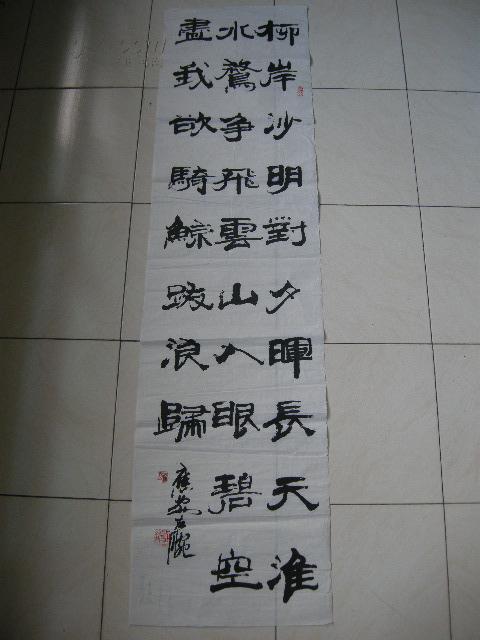 柳岸沙明對夕暉長天淮
水鶩争飛雲山入眼碧空
盡我欲騎鯨跋浪歸
左腕